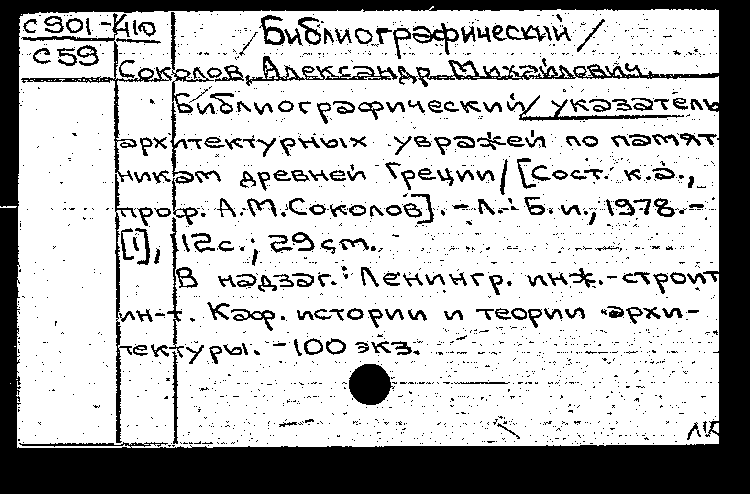 С901-410
/Библиографический/
С59
Соколов, Александр Михайлович.
Библиографический/ указатель
архитектурных увражей по памят-
никам древней Греции/ [Сост. к.а.,
проф. А.М.Соколов]. - Л.: Б.и., 1978.-
[1], 112с.; 29 cm.
В надзаг.: Ленингр. инж.-строит
ин-т. Каф. истории и теории архи-
тектуры. - 100 экз.